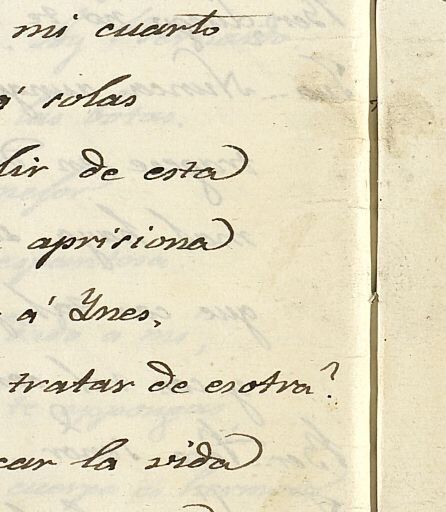 mi cuarto
á solas
lir de esta
aprisiona
á Ynes,
tratar de esotra?
car la vida